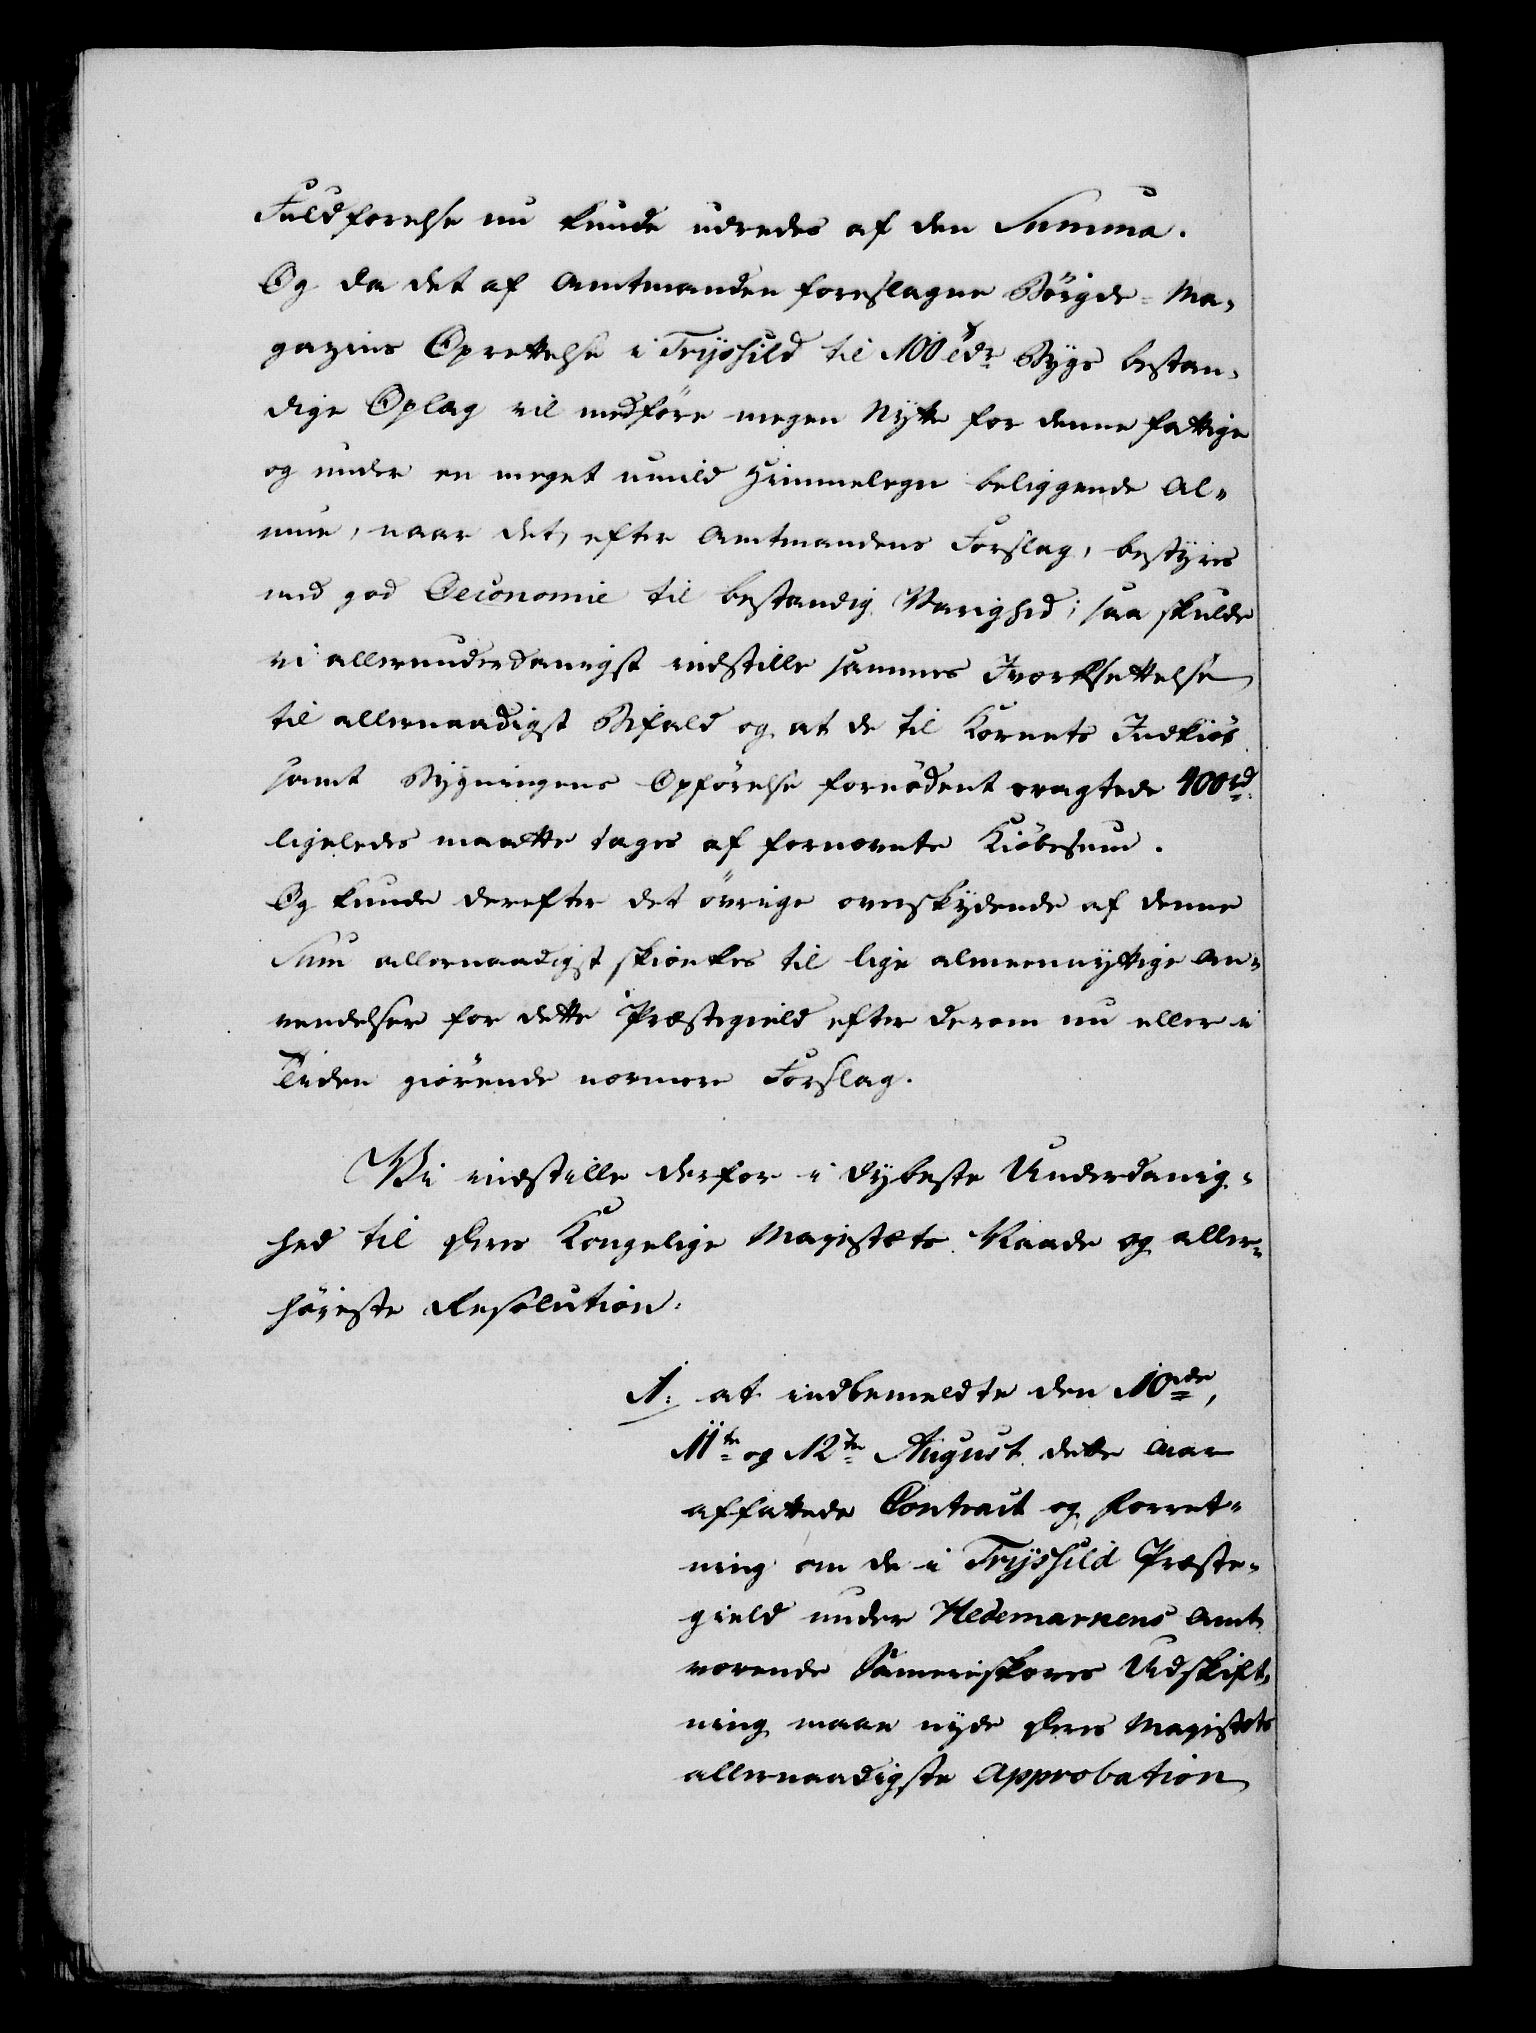 Fuldførelse nu kunde udredes af den Summa.
Og da det af Amtmanden foreslagne Böigde-Ma-
gazins Oprettelse i Trÿssild til 100 tdr Bygs bestan-
dige Oplag vil medføre megen Nytte for denne fattige
og under en meget umild Himmelegn beliggende Al-
mue, naar det, efter Amtmandens Forslag, bestyres
med god Oeconomie til bestandig Varighed; saa skulde
vi allerunderdanigst indstille sammes Iværksettelse
til allernaadigst Bifald og at de til Kornets Indkiöb
samt Bygningens Opförelse fornödent eragtede 400 rd
ligeledes maatte tages af fornevnte Kiöbesum.
Og kunde derefter det övrige overskydende af denne
Sum allernaadigst skienkes til lige almeennyttige An-
vendelser for dette Præstegield efter derom nu eller i
Tiden giörende nærmere Forslag.
Vi indstille derfor i dybeste Underdanig-
hed til Deres Kongelige Majestæts Naade og aller-
höjeste Resolution:
1: at indbemeldte den 10de,
11te og 12te August dette Aar
affattede Contract og Forret-
ning om de i Trÿssild Præste-
gield under Hedemarkens Amt
værende Sameieskoves Udskift-
ning maae nyde Deres Majestæts
allernaadigste Approbation